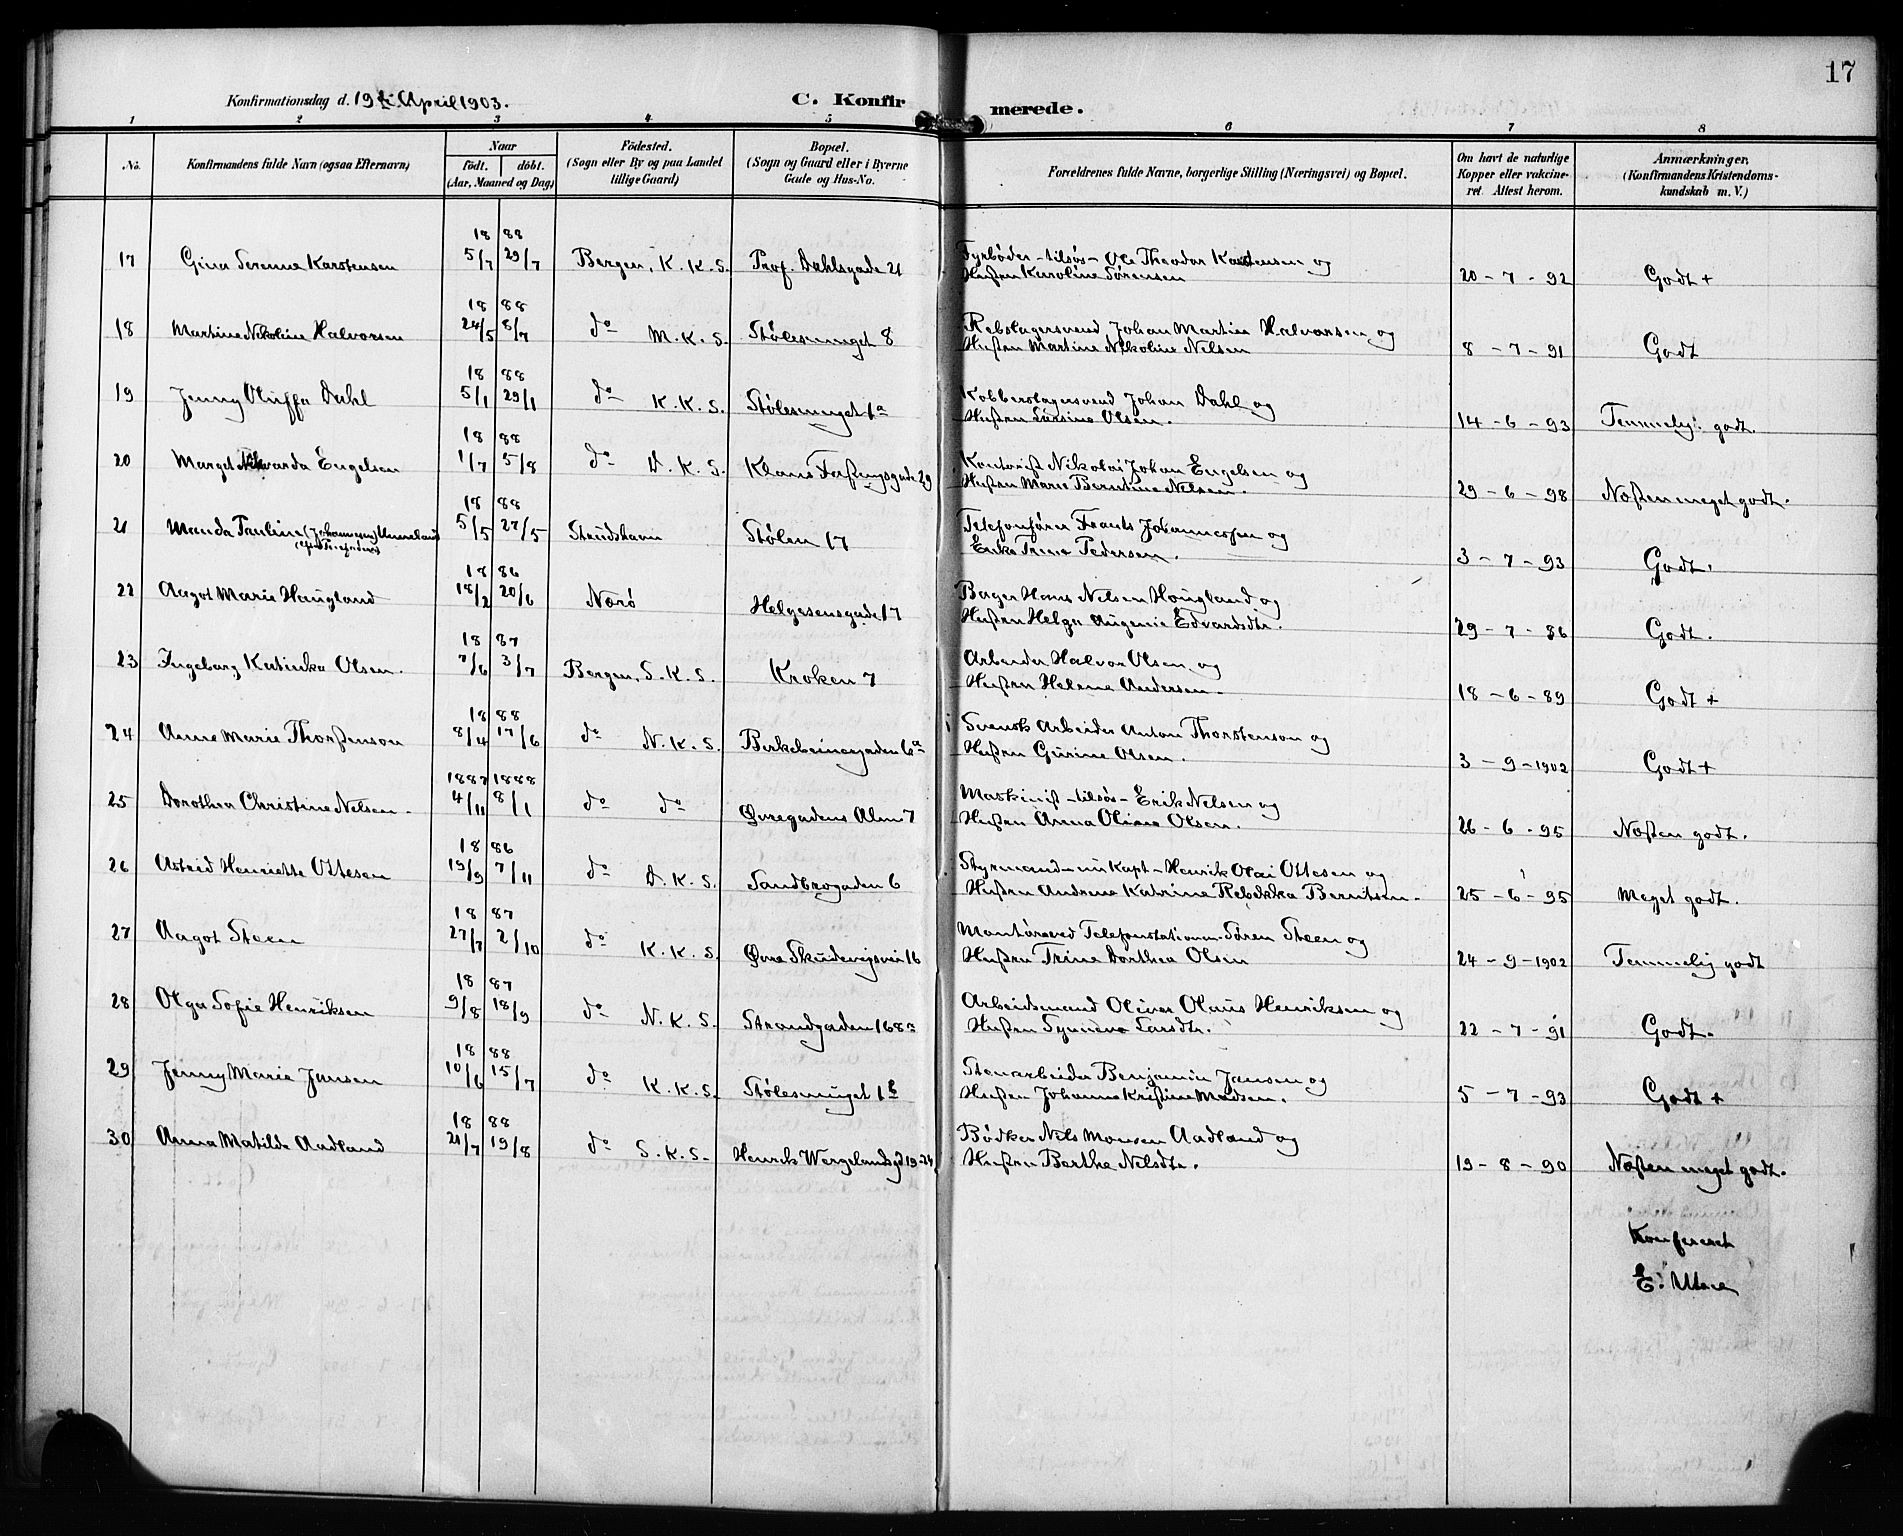 17
Konfirmationsdag d. 19de April 1903.
C. Konfirmerede.
1 2 3 4 5 6 7 8
No.
Konfirmandens fulde Navn (ogsaa Efternavn)
Naar
født. døbt.
(Aar, Maaned og Dag)
Fødested.
(Sogn eller By og paa Landet
tillige Gaard)
Bopæl.
(Sogn og Gaard eller i Byerne
Gade og Hus-No.
Forældrenes fulde Navne, borgerlige Stilling (Næringsvei) og Bopæl.
Om havt de naturlige
Kopper eller vakcine-
ret. Attest herom.
Anmærkninger.
(Konfirmandens Kristendoms-
kundskab m. V.)
18 88
17 Gina Serenne Karstensen 5/7 29/7 Bergen, K. K. S. Prof. Dahlsgade 21 Fyrbøder - tilsøs - Ole Theodor Karstensen og
Hustru Karoline Sørensen 20 - 7 - 92 Godt +
18 88
18 Martine Nikoline Halvorsen 24/5 8/7 do M. K. S. Stølesmuget 8 Rebslagersvend Johan Martin Halvorsen og
Hustru Martine Nikoline Nelsen 8 - 7 - 91 Godt
18 88
19 Jenny Oluffa Dahl 5/1 29/1 do K. K. S. Stølesmuget 1a Kobberslagersvend Johan Dahl og
Hustru Larsine Olsen. 14 - 6 - 93 Temmelig godt.
18 88
20 Marget Edvarda Engelsen 1/7 5/8 do D. K. S. Klaus Fastingsgade 29 Kontorist Nikolai Johan Engelsen og
Hustru Marie Berntine Nelsen. 29 - 6 - 98 Næsten meget godt.
18 88
21 Manda Pauline (Johannesen) Unneland 5/5 27/5 Strudshavn Stølen 17 Telefonfører Frants Johannessen og
Enke Trine Pedersen. 3 - 7 - 93 Godt.
18 86
22 Aagot Marie Haugland 18/2 20/6 Nærø Helgesensgade 17 Bager Hans Nelsen Hougland og
Hustru Helga Augenie Edvardsdtr. 29 - 7 - 86 Godt.
18 87
23 Ingeborg Katinka Olsen. 7/6 3/7 Bergen, S. K. S. Kroken 7 Arbeider Halvor Olsen og
Hustru Helene Andersen. 18 - 6 - 89 Godt +
18 88
24 Anne Marie Thorstenson 8/4 17/6 do N. K. S. Birkebeinergaden 6a Svensk Arbeider Anton Thorstenson og
Hustru Gurine Olsen. 3 - 9 - 1902 Godt +
1887 1888
25 Dorothea Christine Nelsen. 4/11 8/1 do do Øvregadens Alm. 7 Maskinist - tilsøs - Erik Nelsen og
Hustru Anna Oline Olsen. 26 - 6 - 95 Næsten godt.
18 86
26 Astrid Henriette Ottesen 19/9 7/11 do D. K. S. Sandbrogaden 6 Styrmand - nu Kapt - Henrik Olai Ottesen og
Hustru Andrene Katrine Rebekka Berntsen. 25 - 6 - 95 Meget godt.
18 87
27 Aagot Steen 27/7 2/10 do K. K. S. Øvre Skudevigsvei 16 Montør ved Telefonstationen - Søren Steen og
Hustru Trine Dorthea Olsen 24 - 9 - 1902 Temmelig godt
18 87
28 Olga Sofie Henriksen 9/8 18/9 do N. K. S. Strandgaden 168a Arbeidsmand Oliver Olaus Henriksen og
Hustru Synneve Larsdtr. 22 - 7 - 91 Godt.
18 88
29 Jenny Marie Jansen 10/6 15/7 do K. K. S. Stølesmuget 1b Stenarbeider Benjamin Jansen og
Hustru Johanne Kristine Madsen. 5 - 7 - 93 Godt +
18 88
30 Anna Matilde Aadland 21/7 19/8 do S. K. S. Henrik Wergelandsgd 19-24 Bødker Nils Monsen Aadland og
Hustru Berthe Nelsdtr. 19 - 8 - 90 Næsten meget godt.
Konfereret
E.